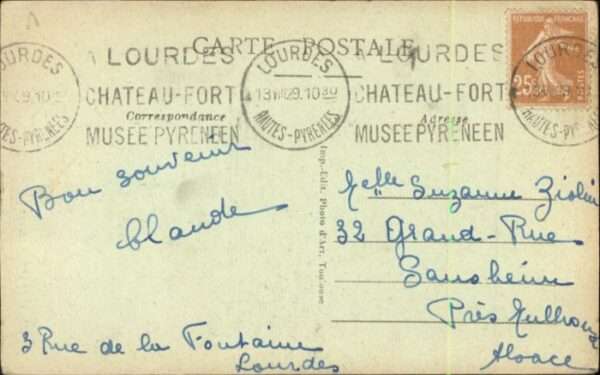 CARTE POSTALE
RÉPUBLIQUE FRANÇAISE
25c
POSTES
A LOURDES
CHATEAU-FORT
MUSEE PYRENEEN
LOURDES
13 VII 29.10 30
HAUTES-PYRENEES
A LOURDES
CHATEAU-FORT
MUSEE PYRENEEN
LOURDES
HAUTES-PYRENEES
LOURDES
HAUTES-PYRENEES
Correspondance
Adresse
Imp.-Edit. Photo d'Art, Toulouse
Bon souvenir
Claude
3 Rue de la Fontaine
Lourdes
Melle Suzanne
32 Grand-Rue
Sausheim
Près Mulhouse
Alsace